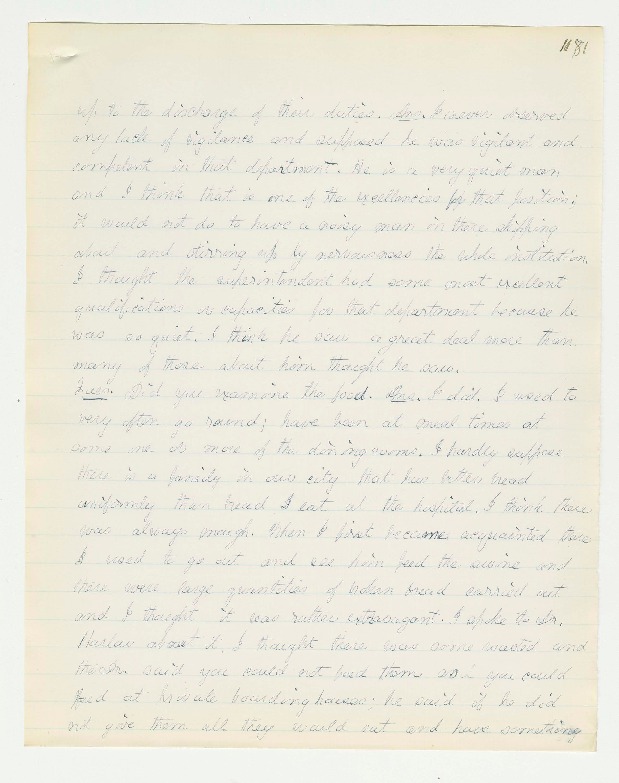 1181
up to the discharge of their duties. Ans. I never observed
any lack of vigilance and supposed he was vigilant and
competent in that department. He is a very quiet man
and I think that is one of the excellencies for that position;
it would not do to have a noisy man in there slipping
about and stirring up by nervousness the whole institution.
I thought the superintendent had some most excellent
qualifications or capacities for that department because he
was so quiet. I think he saw a great deal more than
many of those about him thought he saw.
Ques. Did you examine the food. Ans. I did. I used to
very often go round; have been at meal times at
some one or more of the dining rooms. I hardly suppose
there is a family in our city that has better bread
uniformly than bread I eat at the hospital. I think there
was always enough. When I first became acquainted there
I used to go out and see him feed the swine and
there were large quantities of broken bread carried out
and I thought it was rather extravagant. I spoke to Dr.
Harlow about it, I thought there was some wasted and
the Dr. said you could not feed them as you could
feed at private boarding houses; he said if he did
not give them all they would eat and have something